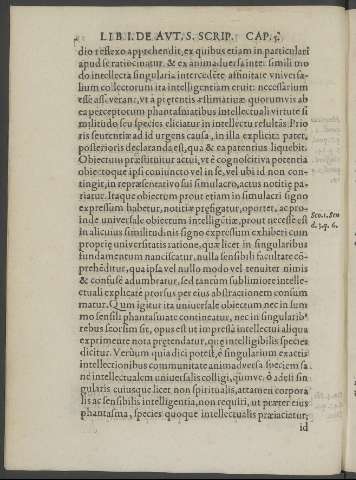 LIB. I. DE AVT. S. SCRIP. CAP. 5.
dio reflexo apprehendit, ex quibus etiam in particulari
apud se ratiocinatur. & ex animaduersa inter simili mo
do intellecta singularia intercedēte affinitate vniuersa-
lium collectorum ita intelligentiam eruit: necessarium
esse asseuerant, vt à prętentis ęstimatiuæ quorumvis ab
ea perceptorum phantasmatibus intellectuali virtute si
militudo seu species eliciatur in intellectu resultās. Prio
ris sententiæ ad id urgens causa, in illa explicita patet,
posterioris declaranda est, qua & ea patentius liquebit.
Obiectum præstituitur actui, vt è cognoscitiua potentia
obiectoque ipsi coniuncto vel in se, vel ubi id non con-
tingit, in repræsentatiuo sui simulacro, actus notitię pa-
riatur. Itaque obiectum prout etiam in simulacri signo
expressum habetur, notitiæ pręfigatur, oportet, ac pro-
inde vniuersale obiectum intelligitiæ, prout necesse est
in alicuius similitudinis signo expressum exhiberi cum
proprię vniuersitatis ratione, quæ licet in singularibus
fundamentum nanciscatur, nulla sensibili facultate cō-
prehēditur, qua ipsa vel nullo modo vel tenuiter nimis
& confusè adumbratur, sed tantum sublimiore intelle-
ctuali explicatè prorsus per eius abstractionem consum
matur. Qum igitur ita vniuersale obiectum nec in sum
mo sensili phantasiuate contineatur, nec in singularib⁹
rebus scorsim sit, opus est ut impressà intellectui aliqua
exprimente nota prętendatur, quę intelligibilis species
dicitur. Verùum quia dici potest, è singularium exactis
intellectionibus communitate animaduersa speciem sa-
nè intellectualem vniuersalis colligi, quin ve, ò adesi sin
gularis cuiusque licet non spiritualis, attamen corpora
lis ac sensibilis intelligentia, non requiri, ut præter eius
phantasma, species quoque intellectualis præiaciatur:
id
Sco. 1. Sco
d. 3. q. 6.